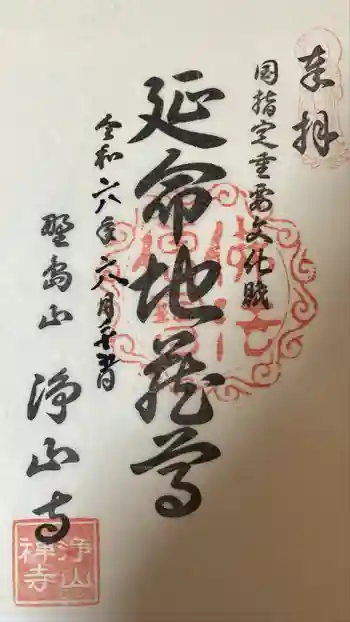 奉拝
国指定重要文化財
延命地蔵尊
令和六年六月二十五日
野島山
浄山寺
浄山
禅寺